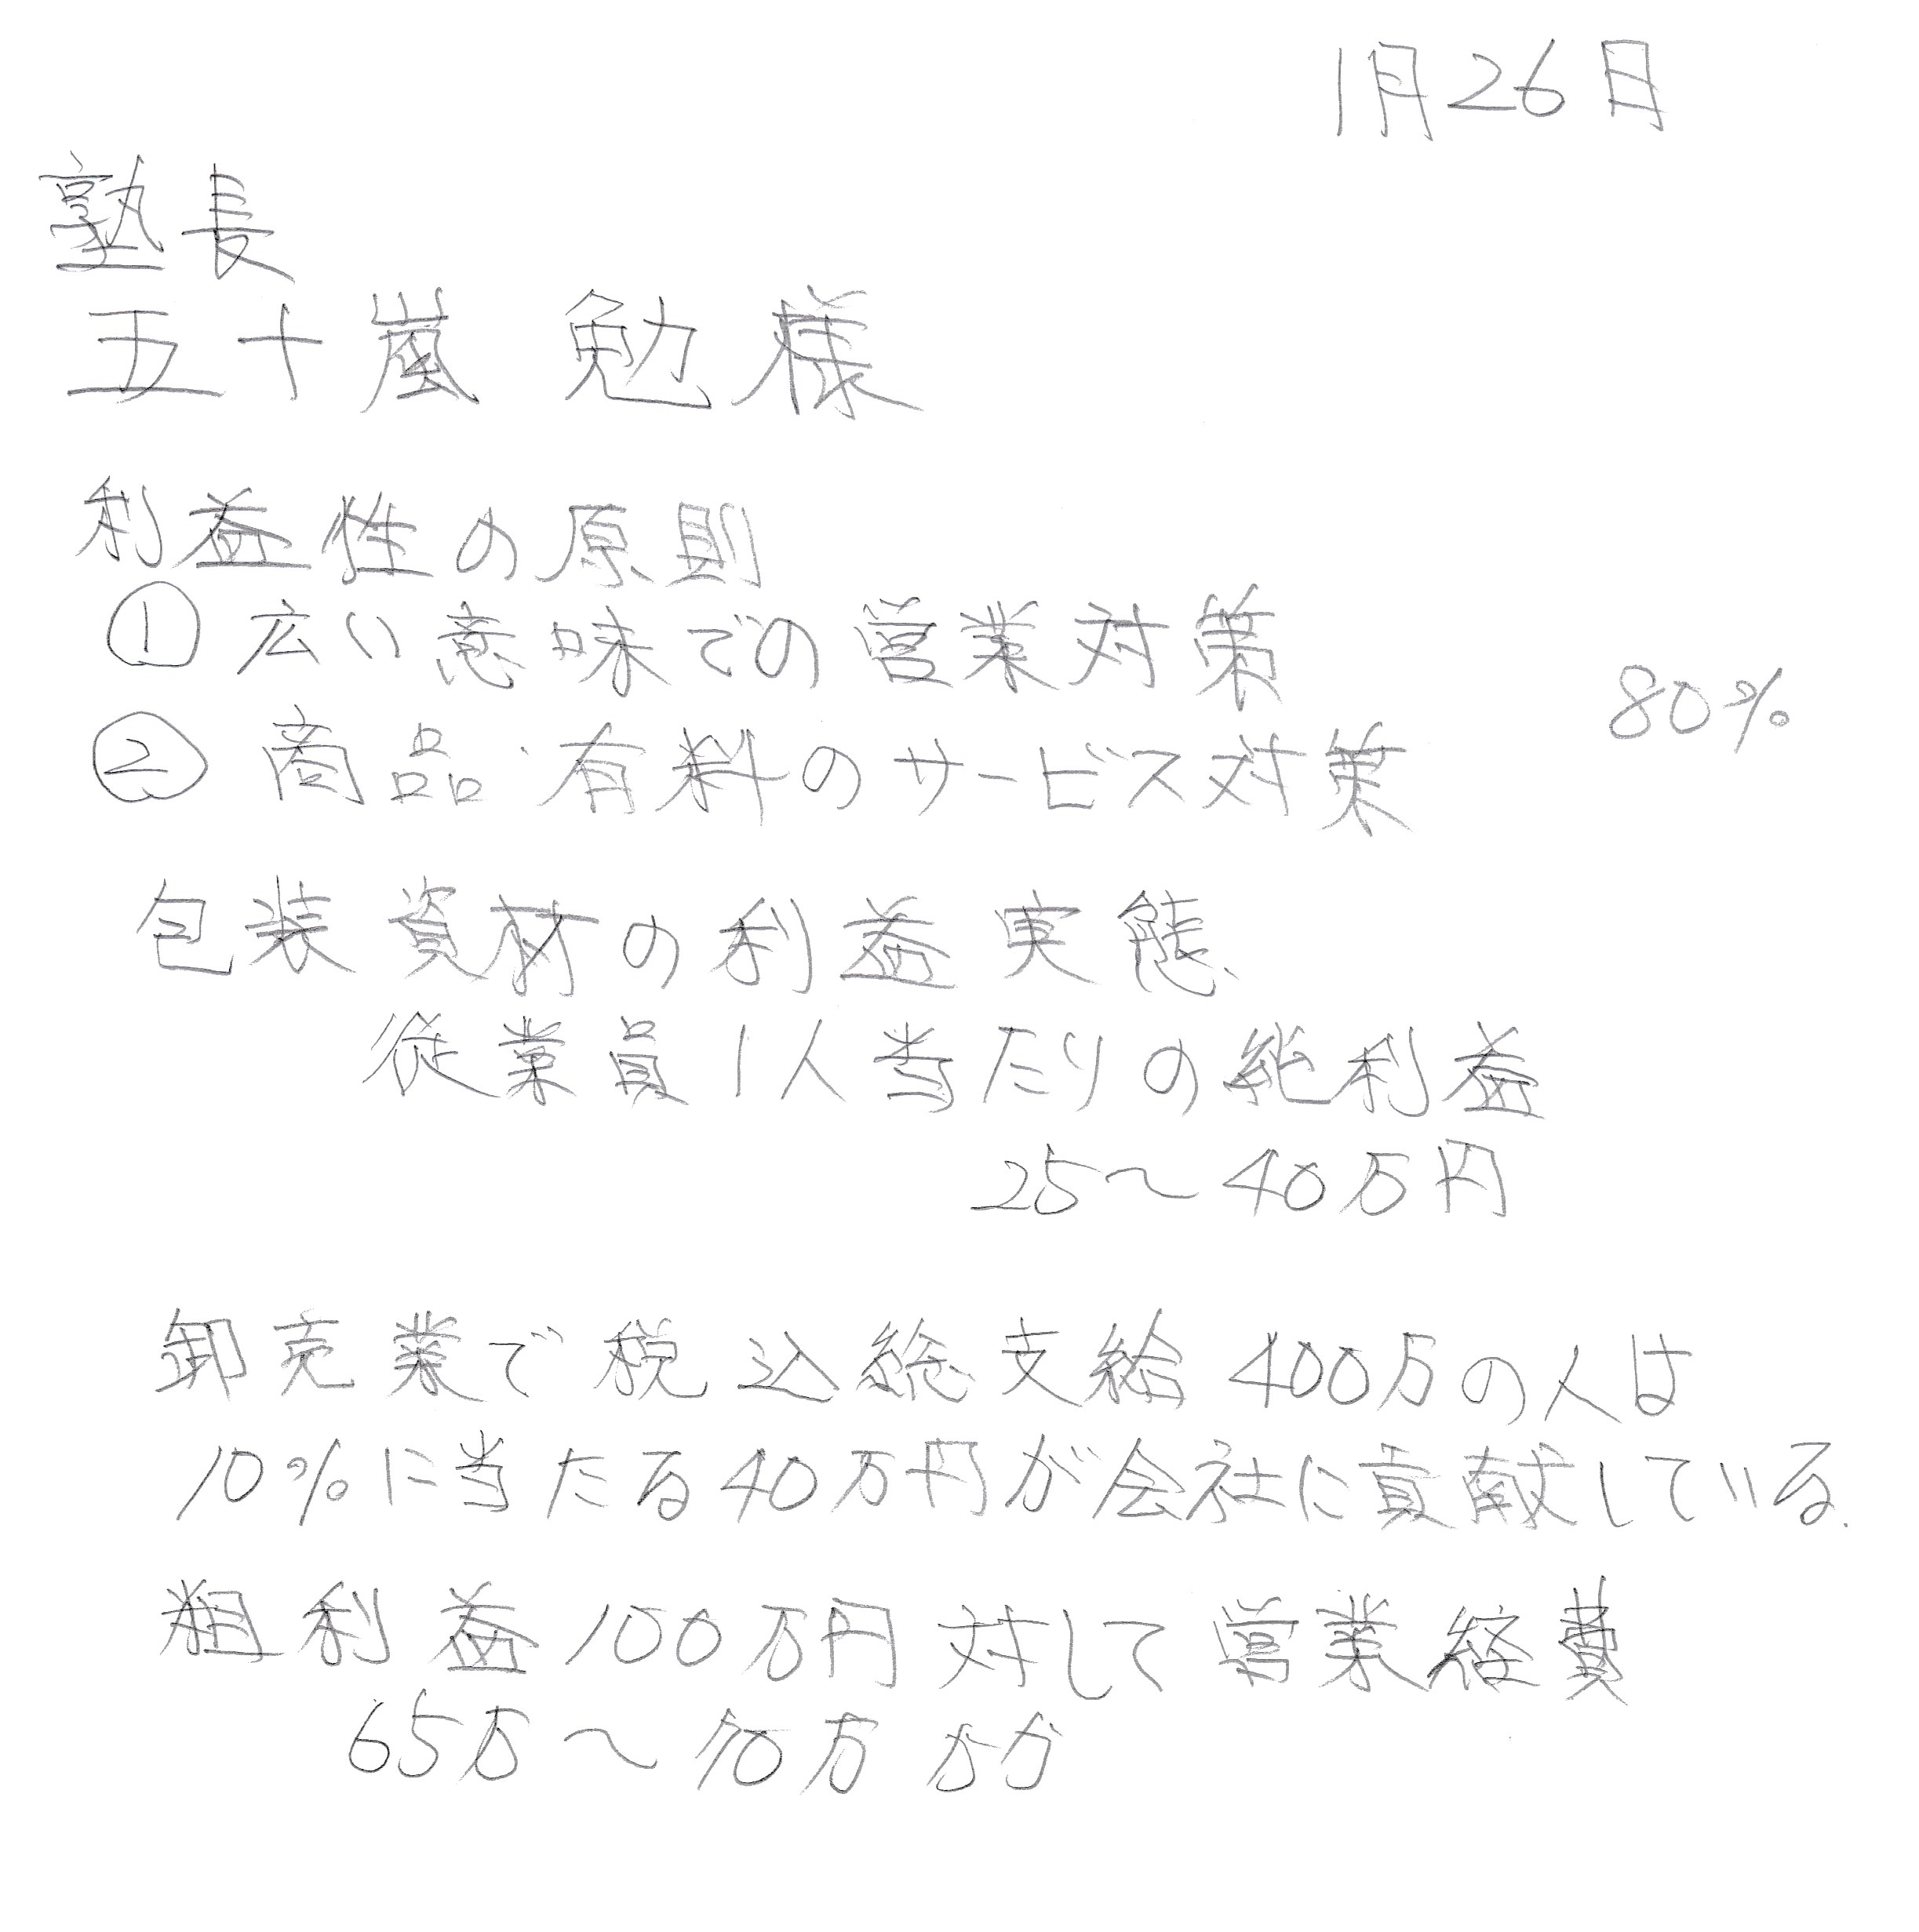 1月26日
塾長
五十嵐 勉様
利益性の原則
① 広い意味での営業対策
80%
② 商品・有料のサービス対策
包装資材の利益実態
従業員1人当たりの純利益
25〜40万円
卸売業で税込総支給400万の人は
10%に当たる40万円が会社に貢献している.
粗利益100万円対して営業経費
65万〜70万